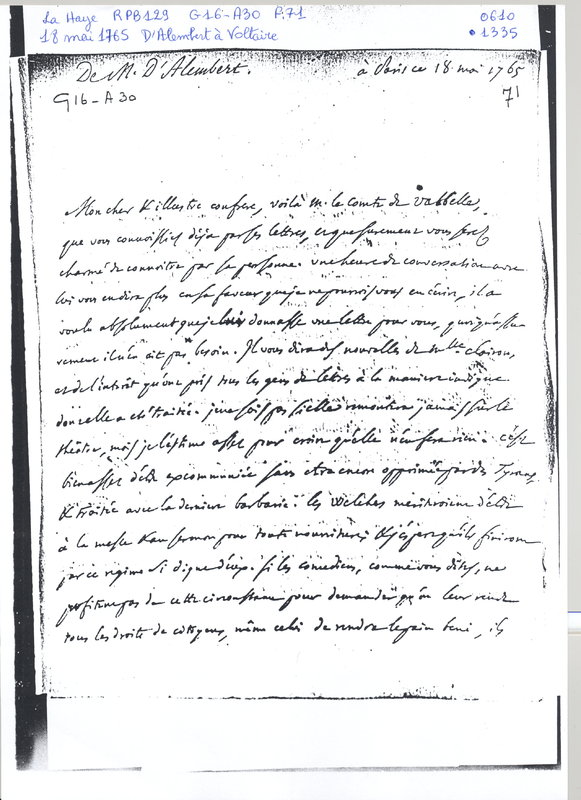 La Haye RPB129 G16-A30 P.71
0610
18 mai 1765 D'Alembert à Voltaire
1335
De M. D'Alembert. à Paris ce 18 mai 1765
G16-A30
71
Mon cher & illustre confrere, voilà m. le comte de Valbelle,
que vous connoissiez déja par ses lettres, et que surement vous serez
charmé de connoitre par sa personne. une heure de conversation avec
lui vous en dira plus en sa faveur que je ne pourrois vous en écrire, il a
voulu absolument que je lui donnasse une lettre pour vous, quoiqu'assu
rement il n'en ait pas besoin. Il vous dira des nouvelles de mlle clairon,
et de l'intérêt qu'ont pris tous les gens de lettres à la maniere indigne
dont elle a été traitée. je ne sais pas si elle remontera jamais sur le
théatre, mais je l'estime assez pour croire qu'elle n'en fera rien. c'est
bien assez d'etre excommuniée sans etre encore opprimée par des Tyrans
& traitée avec la derniere barbarie. les Welches meriteroient d'etre
à la messe & au sermon pour toute nourriture; & j'espere qu'ils finiront
par ce regime si digne d'eux. Si les comediens, comme vous dites, ne
profitent pas de cette circonstance pour demander qu'on leur rende
tous les droits de citoyens, même celui de rendre le pain beni, ils